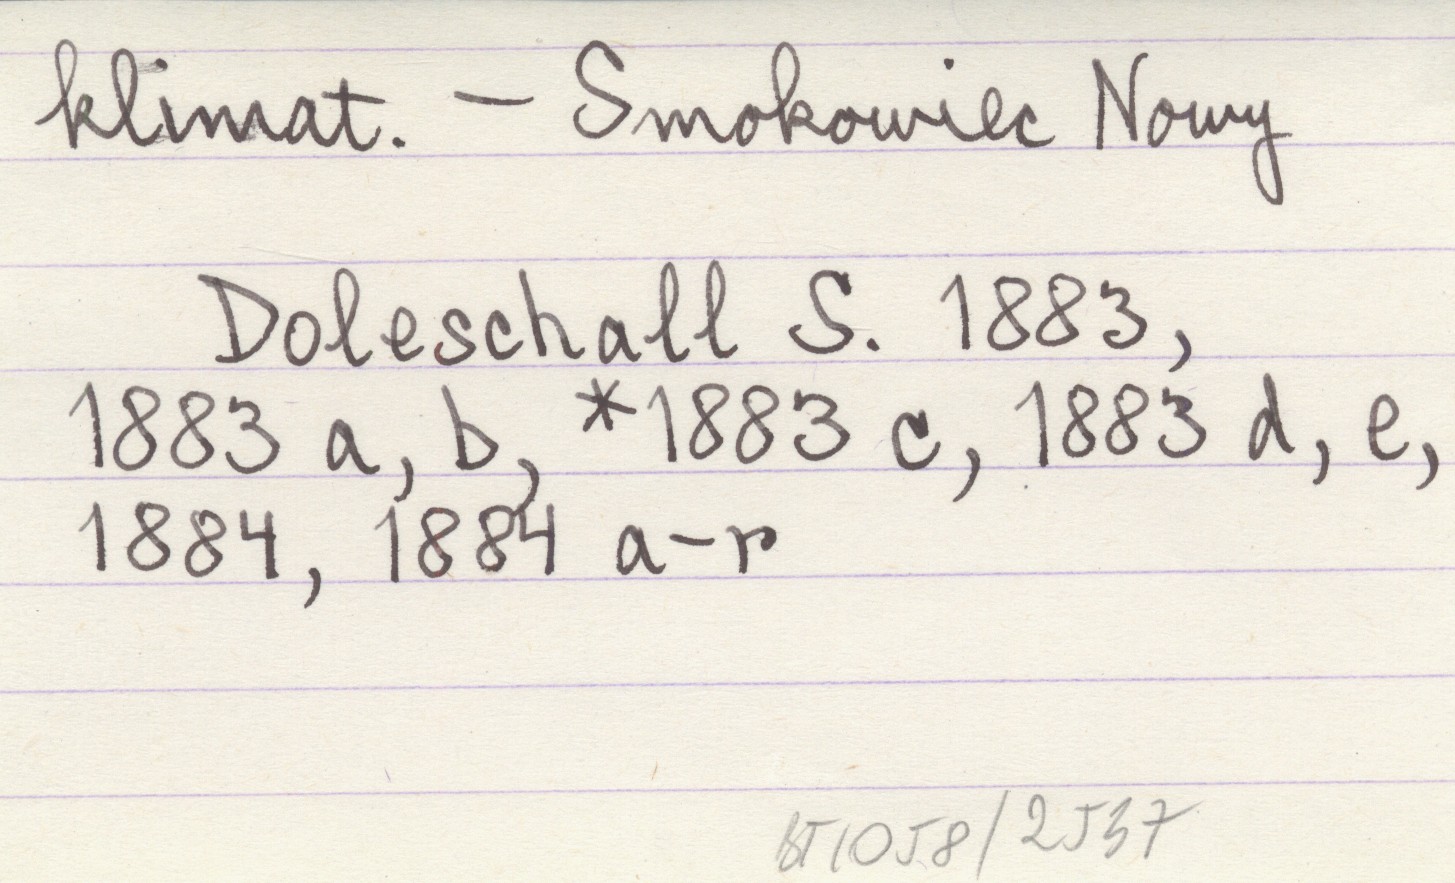 klimat. — Smokowiec Nowy
Doleschall S. 1883,
1883 a, b, *1883 c, 1883 d, e,
1884, 1884 a-r
/2537